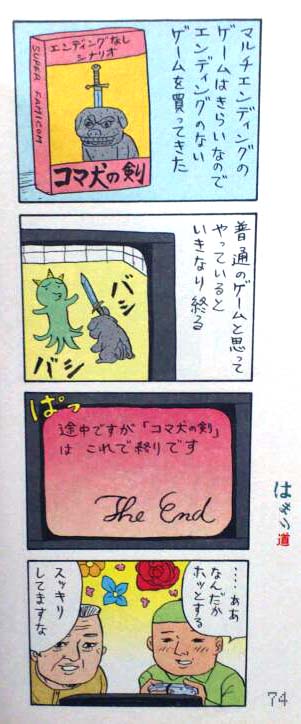 マルチエンディングの
ゲームはきらいなので
エンディングのない
ゲームを買ってきた
エンディングなし
シナリオ
SUPER FAMICOM
コマ犬の剣
普通のゲームと思って
やっていると
いきなり終る
バシ
バシ
ぱっ
途中ですが「コマ犬の剣」
は これで終りです
The End
‥‥ああ
なんだか
ホッとする
スッキリ
してますな
道
74